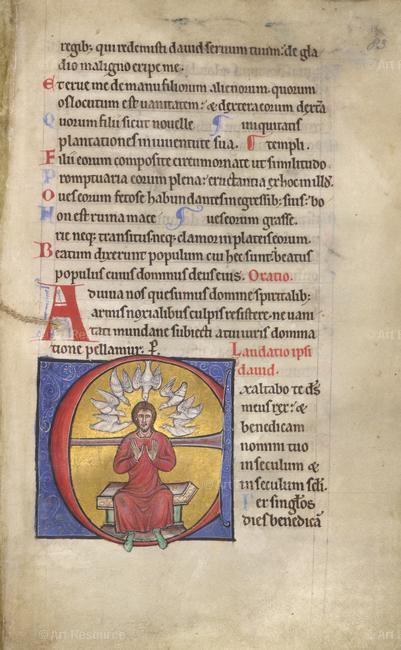 regib; qui redemisti david servum tuum: de gla
dio maligno eripe me.
Et erue me de manu filiorum alienorum. quorum
os locutum est vanitatem: & dextera eorum dextera
Quorum filii sicut novelle iniquitatis
plantationes in iuventute sua. templi.
Filie eorum composite circumornate ut similitudo
Promptuaria eorum plena: eructantia ex hoc in illud.
Oves eorum fetose habundantes in egressib; suis: bo
Non est ruina macerie ves eorum grasse.
rie neq; transitus: neq; clamor in plateis eorum.
Beatum dixerunt populum cui hec sunt: beatus
populus cuius dominus deus eius. Oratio.
Adiuva nos quesumus domine spiritalib;
armis noxialibus culpis resistere: ne vani
tati mundane subiecti. a tui iuris domina
tione pellamur. P.
Laudatio ipsi
david.
Exaltabo te ds
meus rex: &
benedicam
nomini tuo
in seculum &
in seculum scli.
Per singlos
dies benedica
© Art Resource